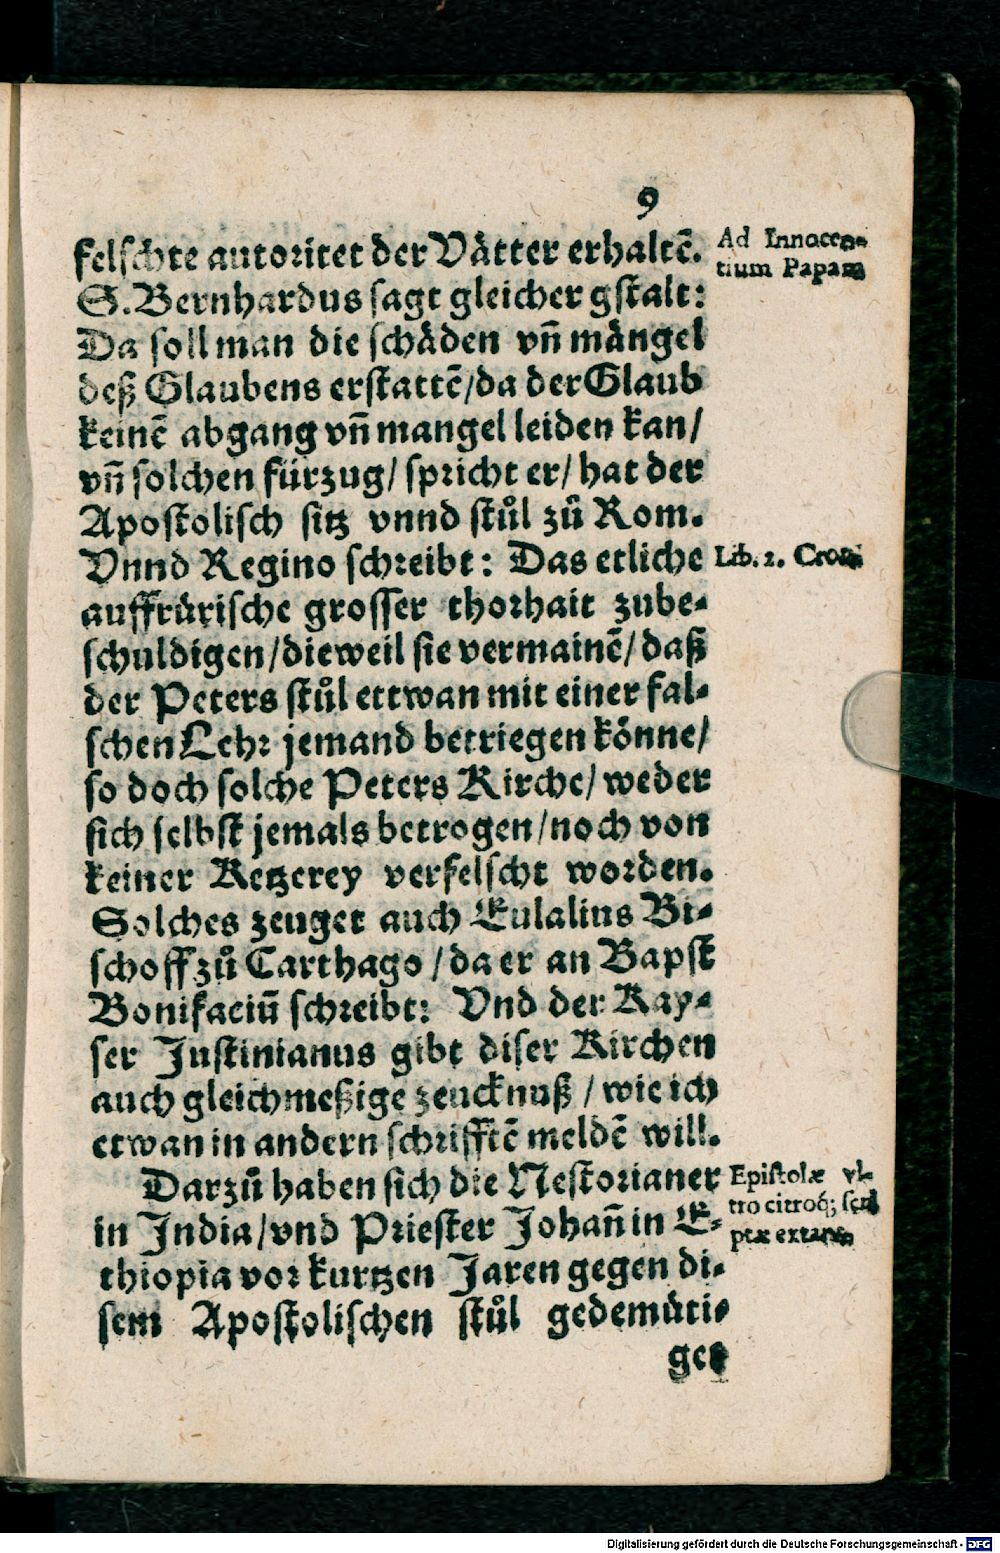 9
felschte autoritet der Vätter erhaltē.
Ad Innocen-
tium Papam
S. Bernhardus sagt gleicher gstalt:
Da soll man die schäden vn̄ mängel
deß Glaubens erstattē/ da der Glaub
keinē abgang vn̄ mangel leiden kan/
vn̄ solchen fürzug/ spricht er/ hat der
Apostolisch sitz vnnd stůl zů Rom.
Vnnd Regino schreibt: Das etliche
Lib. 2. Croni
auffrürische grosser thorhait zube-
schuldigen/ dieweil sie vermainē/ daß
der Peters stůl ettwan mit einer fal-
schen Lehr jemand betriegen könne/
so doch solche Peters Kirche/ weder
sich selbst jemals betrogen/ noch von
keiner Ketzerey verfelscht worden.
Solches zeuget auch Eulalius Bi-
schoff zů Carthago / da er an Bapst
Bonifaciū schreibt: Vnd der Kay-
ser Justinianus gibt diser Kirchen
auch gleichmeßige zeucknuß / wie ich
etwan in andern schrifftē meldē will.
Darzů haben sich die Nestorianer
Epistolæ vl-
tro citroq́; scri
ptæ extant
in India/ vnd Priester Johan̄ in E-
thiopia vor kurtzen Jaren gegen di-
sem Apostolischen stůl gedemüti-
get
Digitalisierung gefördert durch die Deutsche Forschungsgemeinschaft - DFG